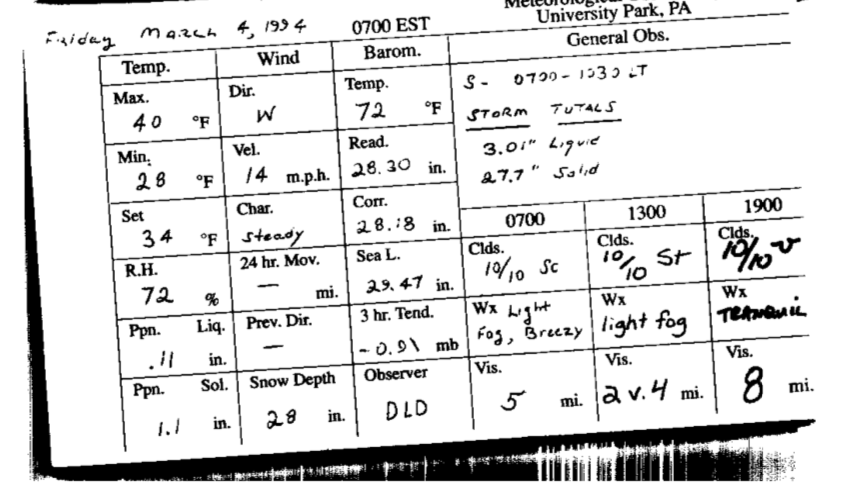 Meteorological
University Park, PA
Friday March 4, 1994 0700 EST
General Obs.
Temp. Wind Barom.
S- 0700-1030 LT
STORM TOTALS
3.01" Liquid
27.7" Solid
Max. Dir. Temp.
40 °F W 72 °F
Min. Vel. Read.
28 °F 14 m.p.h. 28.30 in.
Set Char. Corr.
34 °F steady 28.18 in.
0700 1300 1900
R.H. 24 hr. Mov. Sea L. Clds. Clds. Clds.
72 % — mi. 29.47 in. 10/10 Sc 10/10 St 10/10
Ppn. Liq. Prev. Dir. 3 hr. Tend. Wx Light Wx Wx
.11 in. — -0.91 mb Fog, Breezy light fog TRANQUIL
Ppn. Sol. Snow Depth Observer Vis. Vis. Vis.
1.1 in. 28 in. DLD 5 mi. 2 v. 4 mi. 8 mi.